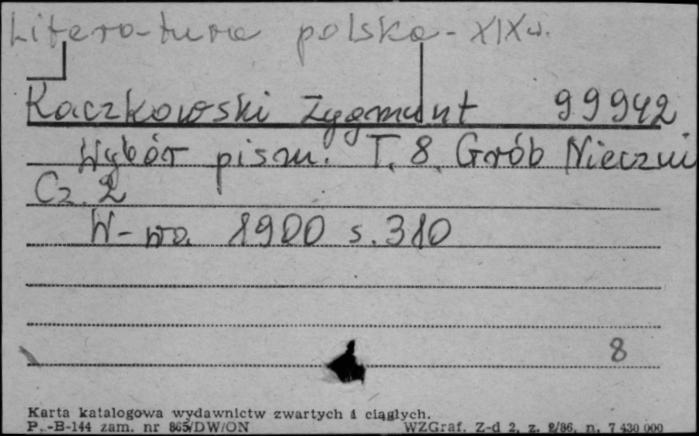 Literatura polska - XIX w.
Kaczkowski Zygmunt 99942
Wybór pism. T. 8. Grób Nieczui
Cz. 2
W-wa 1900 s. 310
8
Karta katalogowa wydawnictw zwartych i ciągłych.
P.-B-144 zam. nr 865/DW/ON WZGraf. Z-d 2, z. 2/86, n. 7 430 000